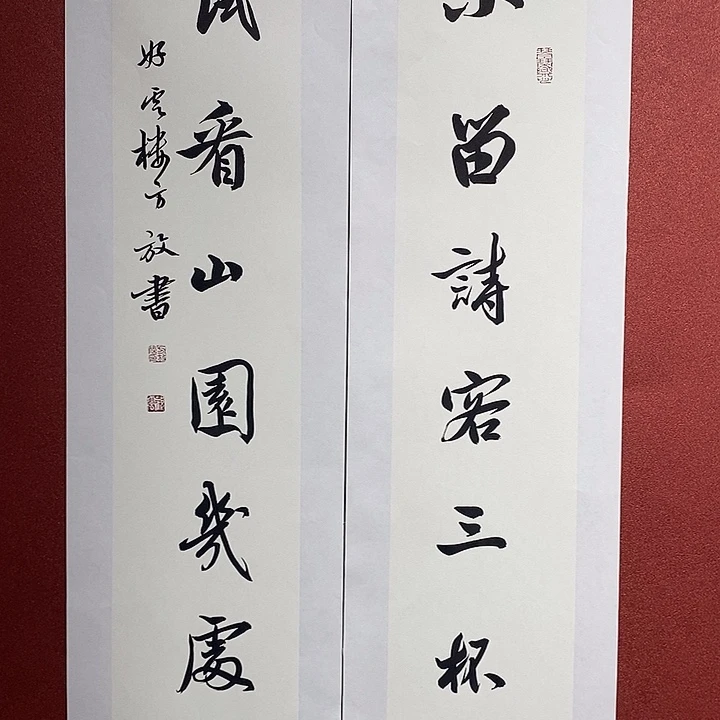 留詩客三杯
看山園幾處
好雲樓方放書